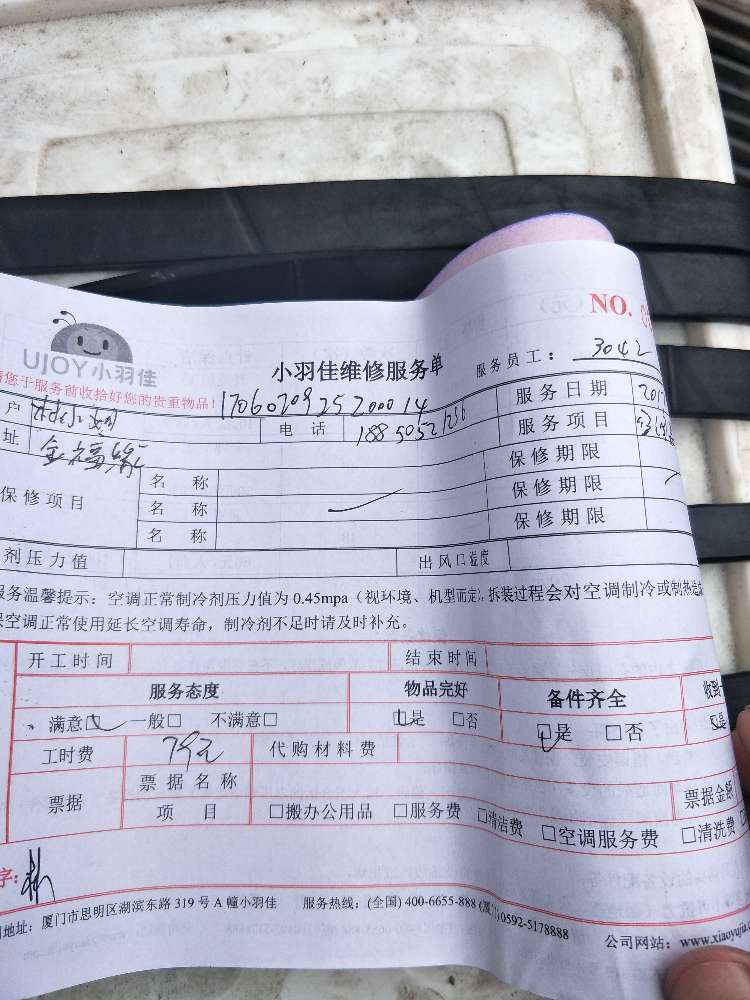 NO.
UJOY小羽佳
小羽佳维修服务单
服务员工: 3042
您于服务前收拾好您的贵重物品!
1706020925200014
户 林小姐 电 话 18850521256 服务日期 201
址 金福缘 服务项目
保修项目 名 称 保修期限
名 称 保修期限
名 称 保修期限
剂压力值 出风口温度
服务温馨提示: 空调正常制冷剂压力值为0.45mpa(视环境、机型而定), 拆装过程会对空调制冷或制热造
空调正常使用延长空调寿命, 制冷剂不足时请及时补充。
开工时间 结束时间
服务态度 物品完好 备件齐全 收到
满意□ 一般□ 不满意□ □是 □否 □是 □否 □是
工时费 代购材料费
票据 票据名称 票据金额
项 目 □搬办公用品 □服务费 □清洁费 □空调服务费 □清洗费
字:
地址: 厦门市思明区湖滨东路319号A幢小羽佳 服务热线: (全国) 400-6655-888 (厦门)0592-5178888 公司网站: www.xiaoyujia